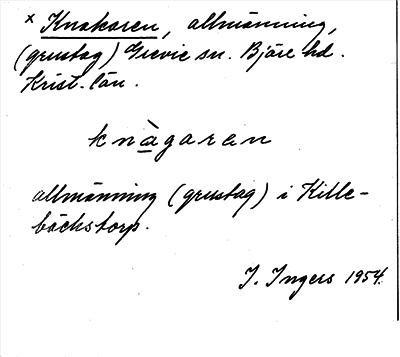 x Knakaren, allmänning,
(grustag) Grevie sn. Bjäre hd.
Krist. län.
knàgarεn
allmänning (grustag) i Kille-
bäckstorp.
I. Ingers 1954.